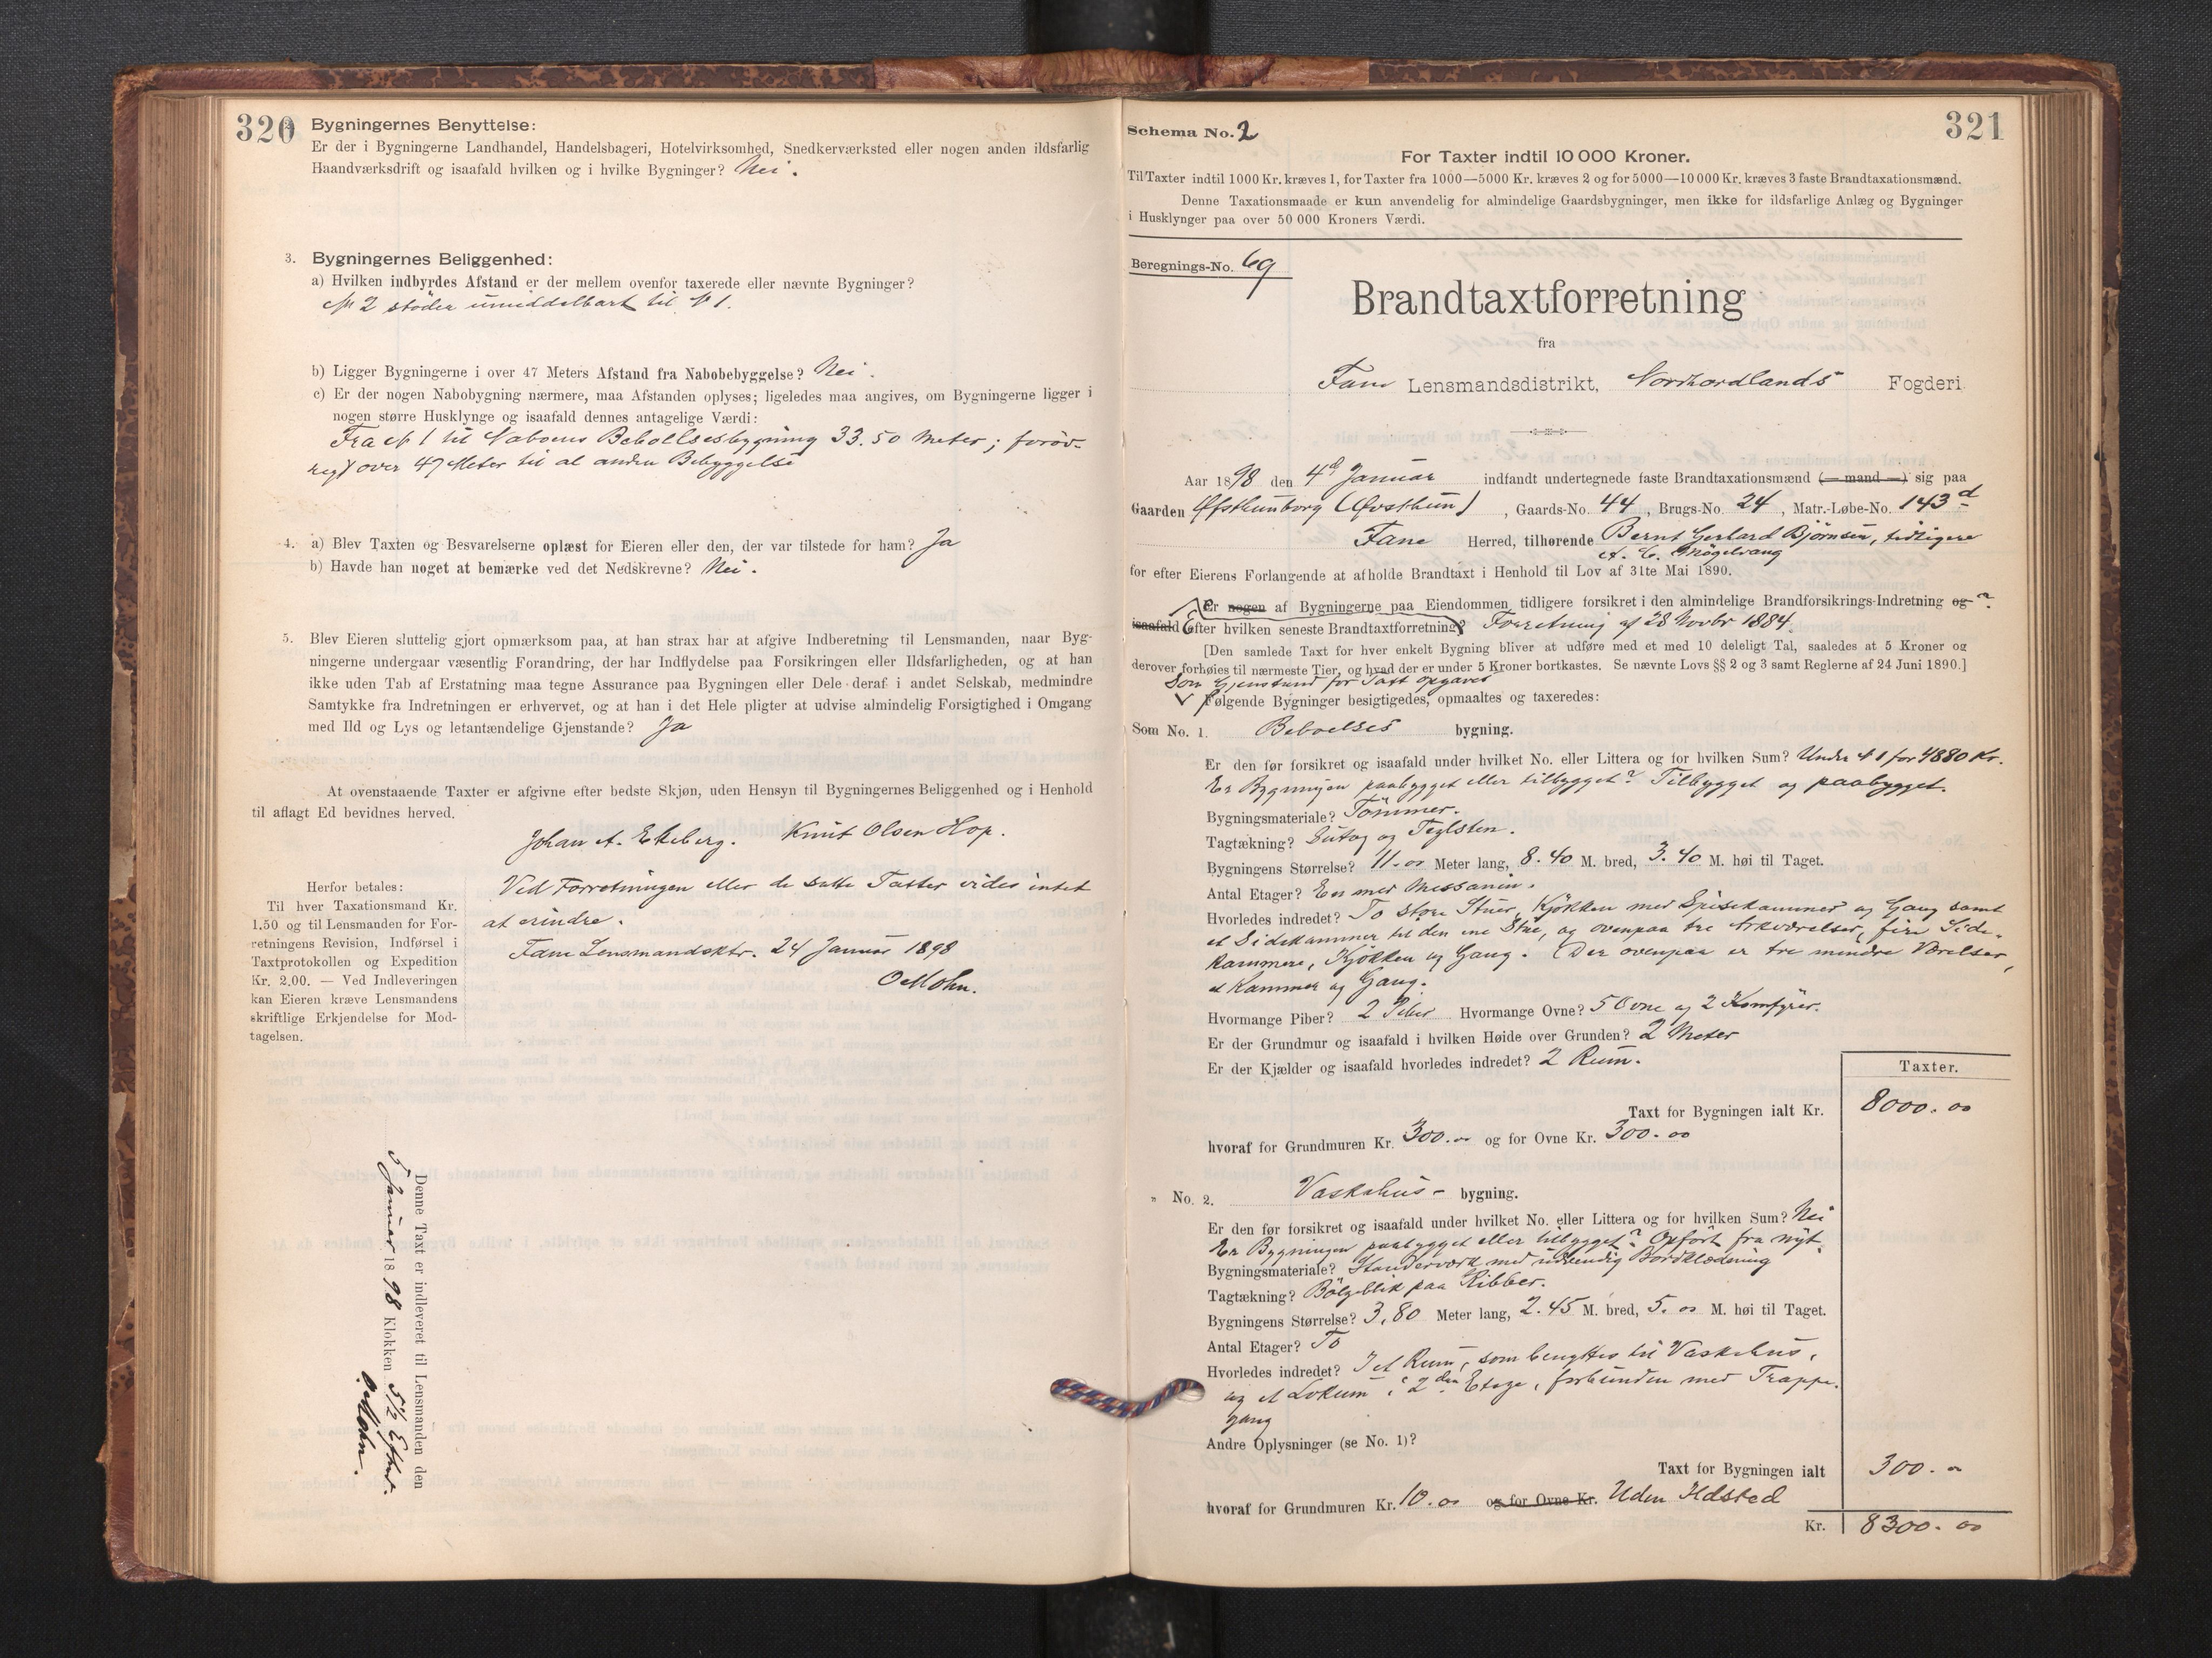 320
2. Bygningernes Benyttelse:
Er der i Bygningerne Landhandel, Handelsbageri, Hotelvirksomhed, Snedkerværksted eller nogen anden ildsfarlig
Haandværksdrift og isaafald hvilken og i hvilke Bygninger? Nei.
3. Bygningernes Beliggenhed:
a) Hvilken indbyrdes Afstand er der mellem ovenfor taxerede eller nævnte Bygninger?
№ 2 støder umiddelbart til № 1.
b) Ligger Bygningerne i over 47 Meters Afstand fra Nabobebyggelse? Nei.
c) Er der nogen Nabobygning nærmere, maa Afstanden oplyses; ligeledes maa angives, om Bygningerne ligger i
nogen større Husklynge og isaafald dennes antagelige Værdi:
Fra № 1 til Naboens Beboelsesbygning 33.50 Meter; forøv-
rigt over 47 Meter til al anden Bebyggelse
4. a) Blev Taxten og Besvarelserne oplæst for Eieren eller den, der var tilstede for ham? Ja
b) Havde han noget at bemærke ved det Nedskrevne? Nei.
5. Blev Eieren sluttelig gjort opmærksom paa, at han strax har at afgive Indberetning til Lensmanden, naar Byg-
ningerne undergaar væsentlig Forandring, der har Indflydelse paa Forsikringen eller Ildsfarligheden, og at han
ikke uden Tab af Erstatning maa tegne Assurance paa Bygningen eller Dele deraf i andet Selskab, medmindre
Samtykke fra Indretningen er erhvervet, og at han i det Hele pligter at udvise almindelig Forsigtighed i Omgang
med Ild og Lys og letantændelige Gjenstande? Ja
At ovenstaaende Taxter er afgivne efter bedste Skjøn, uden Hensyn til Bygningernes Beliggenhed og i Henhold
til aflagt Ed bevidnes herved.
Johan A. Ekeberg. Knut Olsen Hop.
Herfor betales:
Til hver Taxationsmand Kr.
1.50 og til Lensmanden for For-
retningens Revision, Indførsel i
Taxtprotokollen og Expedition
Kr. 2.00. — Ved Indleveringen
kan Eieren kræve Lensmandens
skriftlige Erkjendelse for Mod-
tagelsen.
Ved Forretningen eller de satte Taxter vides intet
at erindre.
Fane Lensmandsktr. 24 Januar 1898
O Mohn.
Denne Taxt er indleveret til Lensmanden den
5 Januar 1898 Klokken 5½ Efterm.
O. Mohn.
321
Schema No. 2
For Taxter indtil 10 000 Kroner.
Til Taxter indtil 1000 Kr. kræves 1, for Taxter fra 1000—5000 Kr. kræves 2 og for 5000—10000 Kr. kræves 3 faste Brandtaxationsmænd.
Denne Taxationsmaade er kun anvendelig for almindelige Gaardsbygninger, men ikke for ildsfarlige Anlæg og Bygninger
i Husklynger paa over 50 000 Kroners Værdi.
Beregnings-No. 69
Brandtaxtforretning
fra
Fane Lensmandsdistrikt, Nordhordlands Fogderi
Aar 1898 den 4d Januar indfandt undertegnede faste Brandtaxationsmænd (— mand —) sig paa
Gaarden Øfsthunborg (Øvsthun), Gaards-No. 44, Brugs-No. 24, Matr.-Løbe-No. 143d
Fane Herred, tilhørende Bernt Gerhard Bjørnsen, tidligere
A. C. Møgelvang
for efter Eierens Forlangende at afholde Brandtaxt i Henhold til Lov af 31te Mai 1890.
Er nogen af Bygningerne paa Eiendommen tidligere forsikret i den almindelige Brandforsikrings-Indretning og ?
isaafald Efter hvilken seneste Brandtaxtforretning? Forretning af 28 Novbr 1884.
[Den samlede Taxt for hver enkelt Bygning bliver at udføre med et med 10 deleligt Tal, saaledes at 5 Kroner og
derover forhøies til nærmeste Tier, og hvad der er under 5 Kroner bortkastes. Se nævnte Lovs §§ 2 og 3 samt Reglerne af 24 Juni 1890.]
Som Gjenstand for Taxt opgaves
Følgende Bygninger besigtigedes, opmaaltes og taxeredes:
Som No. 1. Beboelses bygning.
Er den før forsikret og isaafald under hvilket No. eller Littera og for hvilken Sum? Under № 1 for 4880 Kr.
Er Bygningen paabygget eller tilbygget? Tilbygget og paabygget.
Bygningsmateriale? Tømmer.
Tagtækning? Sutag og Teglsten.
Bygningens Størrelse? 11.00 Meter lang, 8.40 M. bred, 3.40 M. høi til Taget.
Antal Etager? En med Messanin.
Hvorledes indredet? To store Stuer, Kjøkken med Spisekammer og Gang samt
et Sidekammer til den ene Stue, og ovenpaa tre Arkværelser, fire Side-
kammere, Kjøkken og Gang. Der ovenpaa er tre mindre Værelser,
et Kammer og Gang.
Hvormange Piber? 2 Piber Hvormange Ovne? 5 Ovne og 2 Komfyrer.
Er der Grundmur og isaafald i hvilken Høide over Grunden? 2 Meter
Er der Kjælder og isaafald hvorledes indredet? 2 Rum.
Taxter.
Taxt for Bygningen ialt Kr. 8000.00
hvoraf for Grundmuren Kr. 300.00 og for Ovne Kr. 300.00
" No. 2. Vaskehus- bygning.
Er den før forsikret og isaafald under hvilket No. eller Littera og for hvilken Sum? Nei
Er Bygningen paabygget eller tilbygget? Opført fra nyt.
Bygningsmateriale? Standerværk med udvendig Bordklædning
Tagtækning? Bølgeblik paa Ribber.
Bygningens Størrelse? 3,80 Meter lang, 2.45 M. bred, 5.00 M. høi til Taget.
Antal Etager? To
Hvorledes indredet? I et Rum, som benyttes til Vaskehus,
og et Lokum i 2den Etage, forbunden med Trappe-
gang
Andre Oplysninger (se No. 1)?
Taxt for Bygningen ialt 300.00
hvoraf for Grundmuren Kr. 10.00 og for Ovne Kr. Uden Ildsted
Kr. 8300.00